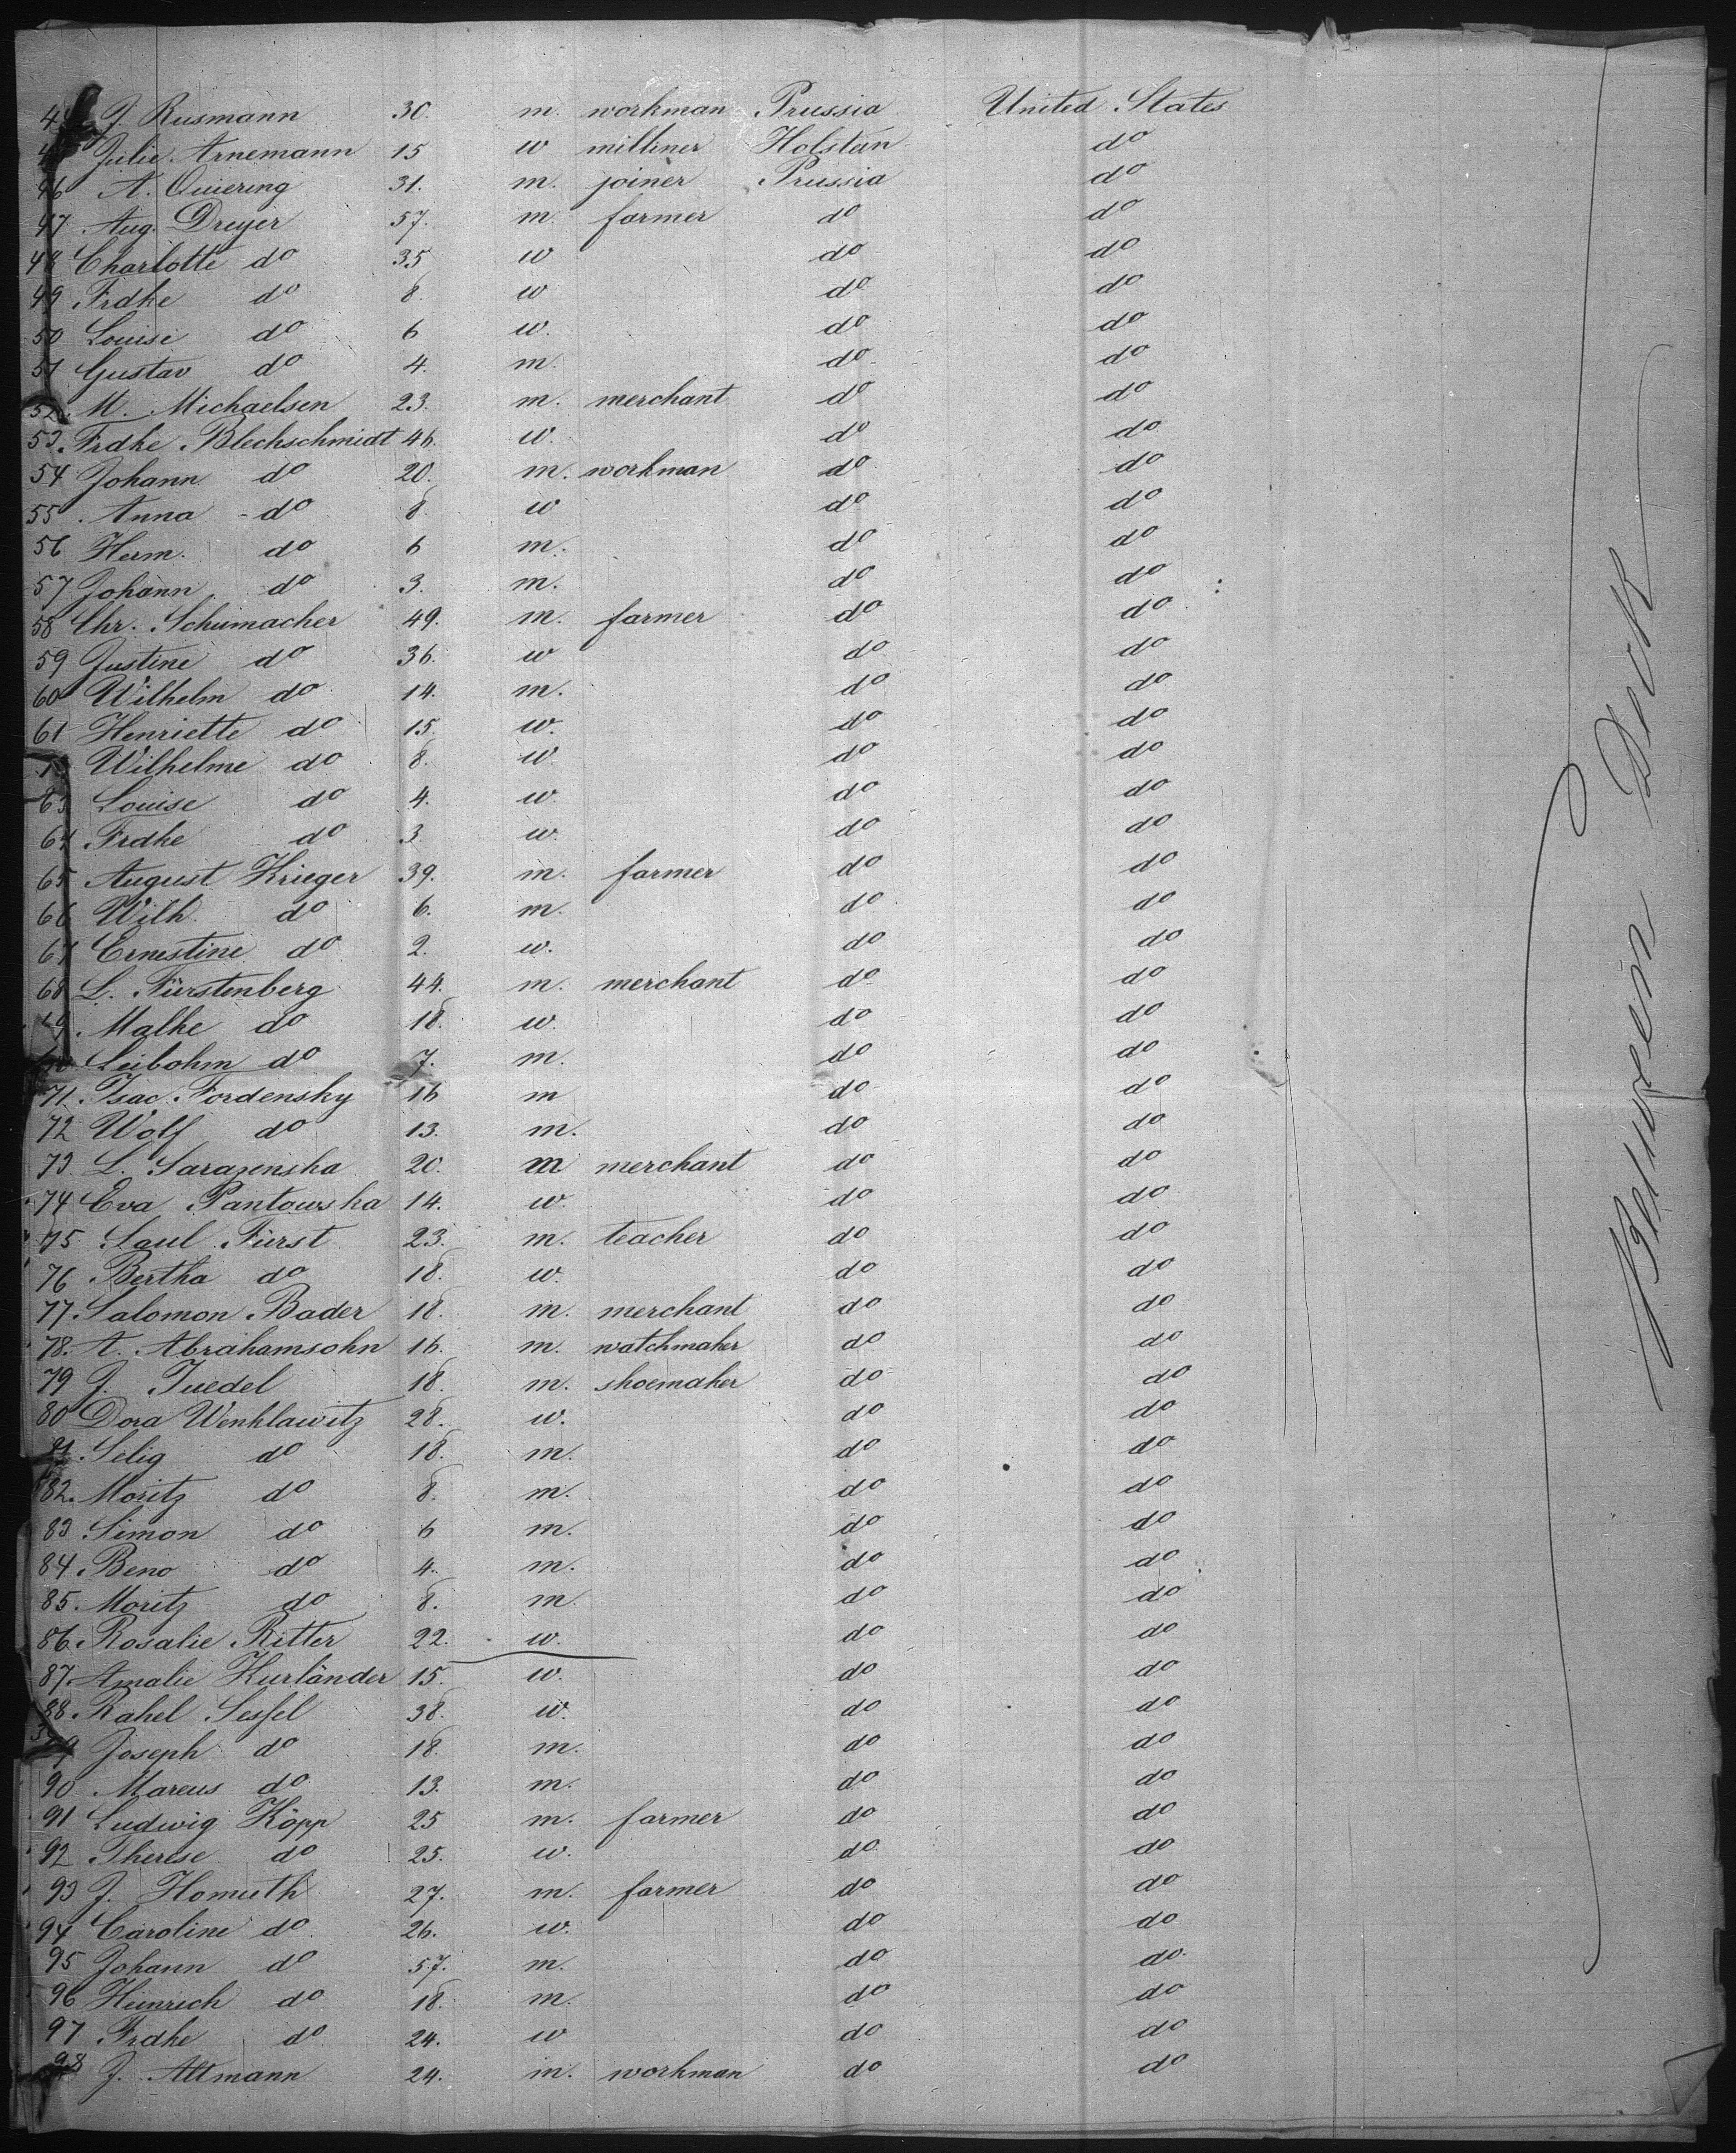 J. Rusmann 30. m. workman Prussia United States
Julie Arnemann 15 w milliner Holstein do
46 A. Quiering 31. m. joiner Prussia do
47 Aug. Dreyer 57. m. farmer do do
48 Charlotte do 35 w do do
49 Frdke do 8. w do do
50 Louise do 6 w. do do
51 Gustav do 4. m. do do
52. M. Michaelsen 23. m. merchant do do
53. Frdke Blechschmidt 46. w. do do
54 Johann do 20. m. workman do do
55 Anna - do 8. w do do
56 Herm. do 6 m. do do
57 Johann do 3. m. do do
58 Chr. Schumacher 49. m. farmer do do
59 Justine do 36. w do do
60 Wilhelm do 14. m. do do
61 Henriette do 15. w. do do
Wilhelme do 8. w. do do
63 Louise do 4. w. do do
64 Frdke do 3. w. do do
65 August Krieger 39. m. farmer do do
66 Wilh. do 6. m. do do
67 Ernestine do 2. w. do do
68 L. Fürstenberg 44. m. merchant do do
69 Malke do 18. w. do do
Leibohm do 7. m. do do
71. Isac Fordensky 16 m do do
72 Wolf do 13. m. do do
73 L. Sarazenska 20. m merchant do do
74 Eva Pantowska 14. w. do do
75 Saul Fürst 23. m. teacher do do
76 Bertha do 18. w. do do
77. Salomon Bader 18. m. merchant do do
78. A. Abrahamsohn 16. m. watchmaker do do
79 J. Tuedel 18. m. shoemaker do do
80 Dora Wenklawitz 28. w. do do
81 Selig do 18. m. do do
82. Moritz do 8. m. do do
83 Simon do 6 m. do do
84. Beno do 4. m. do do
85. Moritz do 8. m. do do
86. Rosalie Ritter 22. w. do do
87. Amalie Kurländer 15. w. do do
88. Rahel Sessel 38. w. do do
Joseph do 18. m. do do
90 Marcus do 13. m. do do
91 Ludwig Köpp 25 m. farmer do do
92 Therese do 25. w. do do
93 J. Homuth 27. m. farmer do do
94 Caroline do 26. w. do do
95 Johann do 57. m. do do
96 Heinrich do 18. m. do do
97 Frdke do 24. w do do
98 J. Altmann 24. m. workman do do
Between Deck